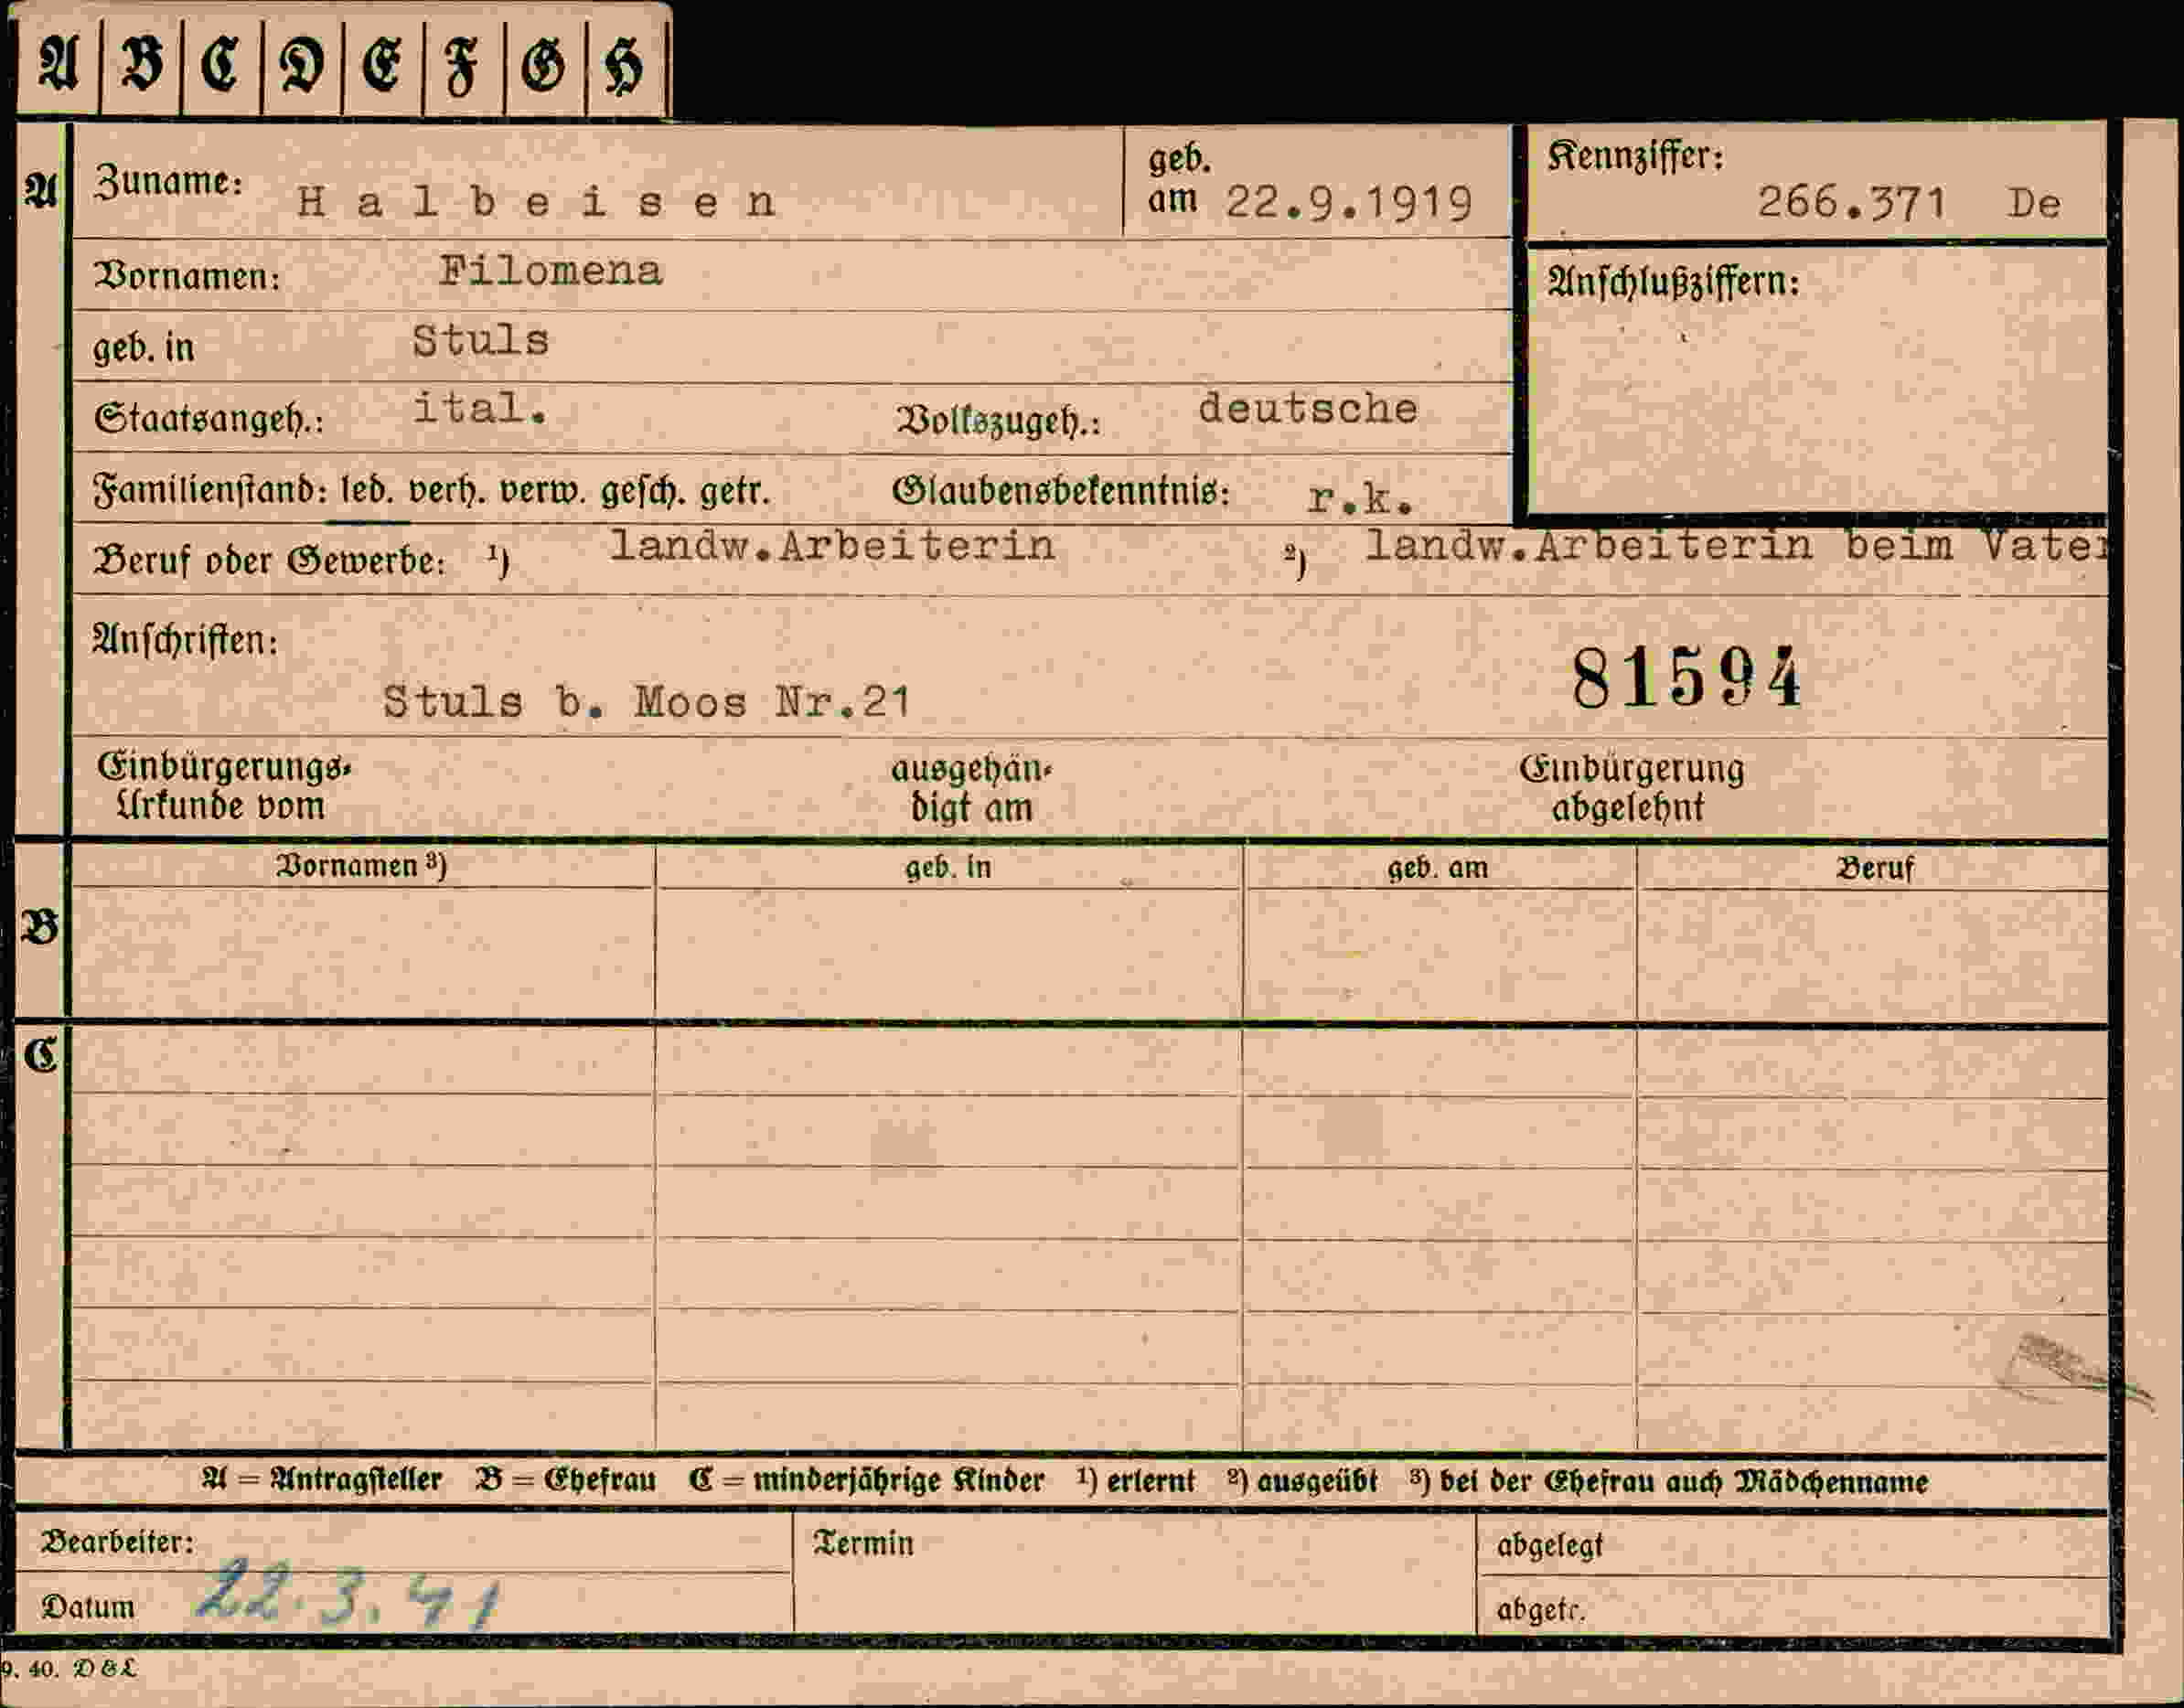 A B C D E F G H
A Zuname: Halbeisen geb. am 22.9.1919 Kennziffer: 266.371 De
Vornamen: Filomena Anschlußziffern:
geb. in Stuls
Staatsangeh.: ital. Volkszugeh.: deutsche
Familienstand: led. verh. verw. gesch. getr. Glaubensbekenntnis: r.k.
Beruf oder Gewerbe: ¹) landw.Arbeiterin ²) landw.Arbeiterin beim Vater
Anschriften:
81594
Stuls b. Moos Nr.21
Einbürgerungs- ausgehän- Einbürgerung
Urkunde vom digt am abgelehnt
Vornamen ³) geb. in geb. am Beruf
B
C
A = Antragsteller B = Ehefrau C = minderjährige Kinder ¹) erlernt ²) ausgeübt ³) bei der Ehefrau auch Mädchenname
Bearbeiter: Termin abgelegt
Datum 22.3.41 abgetr.
9. 40. D & L